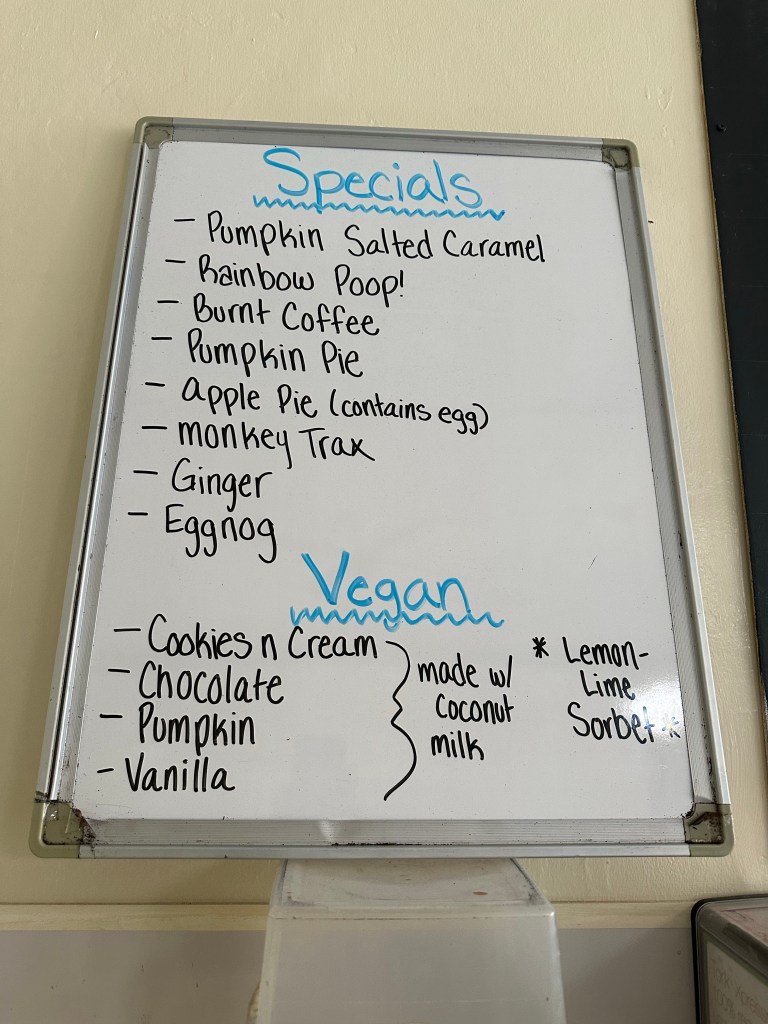 Specials
- Pumpkin Salted Caramel
- Rainbow Poop!
- Burnt Coffee
- Pumpkin Pie
- apple Pie (contains egg)
- monkey Trax
- Ginger
- Eggnog
Vegan
- Cookies n Cream
- Chocolate
- Pumpkin
- Vanilla
made w/
coconut
milk
* Lemon-
Lime
Sorbet *